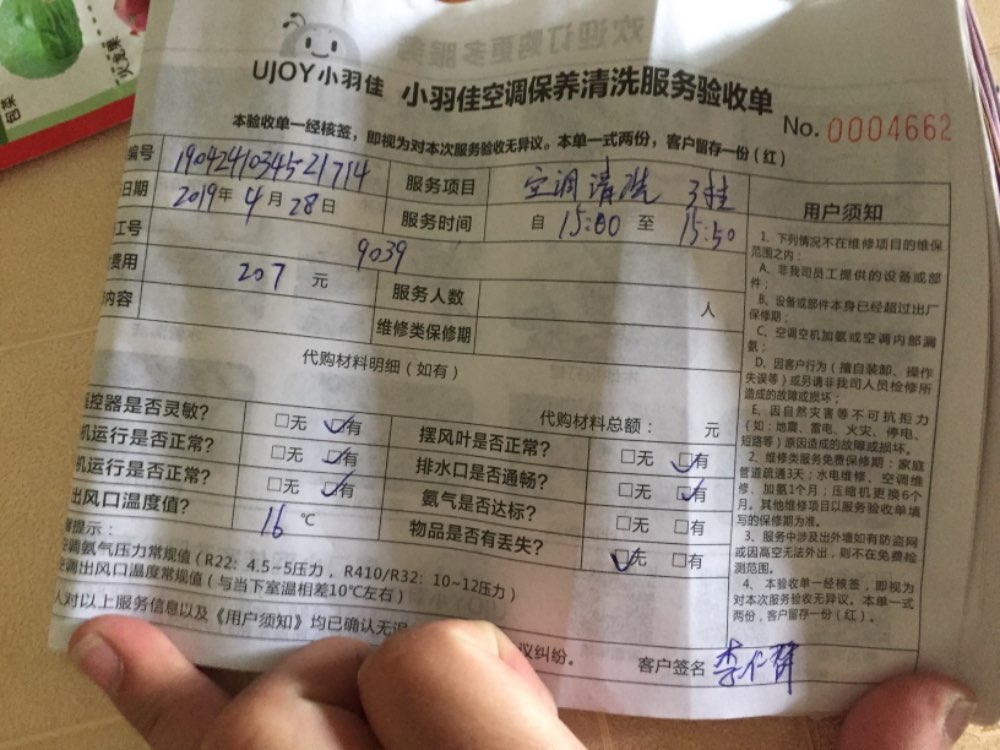 欢迎订购更多服务
火龙果
包菜
UJOY小羽佳 小羽佳空调保养清洗服务验收单
No. 0004662
本验收单一经核签，即视为对本次服务验收无异议。本单一式两份，客户留存一份(红)
编号 1904241034521714 服务项目 空调清洗 3挂
日期 2019年4月28日 服务时间 自 15:00 至 15:50
工号 9039
费用 207 元 服务人数 人
内容 维修类保修期
代购材料明细(如有)
代购材料总额： 元
控器是否灵敏? □无 ☑有 摆风叶是否正常? □无 ☑有
机运行是否正常? □无 ☑有 排水口是否通畅? □无 ☑有
机运行是否正常? □无 ☑有 氨气是否达标? □无 □有
出风口温度值? 16 ℃ 物品是否有丢失? ☑无 □有
提示：
调氨气压力常规值(R22：4.5~5压力，R410/R32：10~12压力)
调出风口温度常规值(与当下室温相差10℃左右)
人对以上服务信息以及《用户须知》均已确认无误
议纠纷。
客户签名
用户须知
1、下列情况不在维修项目的维保
范围之内：
A、非我司员工提供的设备或部
件；
B、设备或部件本身已经超过出厂
保修期；
C、空调空机加氨或空调内部漏
氨；
D、因客户行为(擅自装卸、操作
失误等)或另请非我司人员检修所
造成的故障或损坏；
E、因自然灾害等不可抗拒力
(如:地震、雷电、火灾、停电、
短路等)原因造成的故障或损坏。
2、维修类服务免费保修期：家庭
管道疏通3天；水电维修、空调维
修、加氨1个月；压缩机更换6个
月。其他维修项目以服务验收单填
写的保修期为准。
3、服务中涉及出外墙如有防盗网
或因高空无法外出，则不在免费检
测范围。
4、本验收单一经核签，即视为
对本次服务验收无异议。本单一式
两份，客户留存一份(红)。